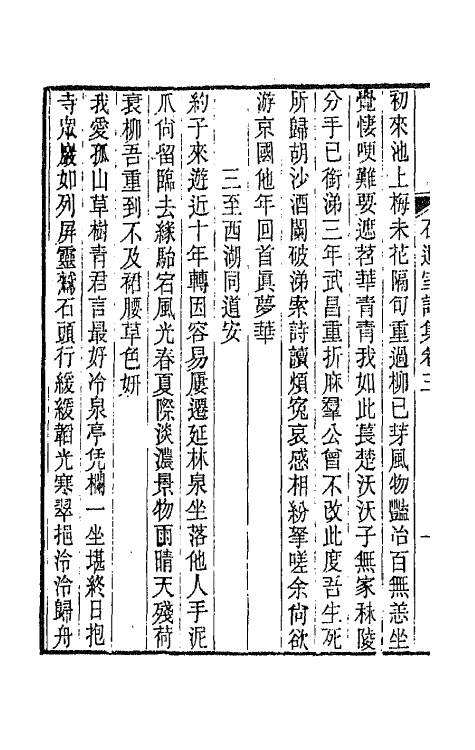 石遺室詩集卷三
初來池上梅未花隔旬重過柳已芽風物豔冶百無恙坐
覺悽哽難要遮苕華青青我如此萇楚沃沃子無家秣陵
分手已銜涕三年武昌重折麻羣公曾不改此度吾生死
所歸胡沙酒闌破涕索詩讀煩冤哀感相紛拏嗟余尙欲
游京國他年回首眞夢華
三至西湖同道安
約子來遊近十年轉因容易屢遷延林泉坐落他人手泥
爪尙留臨去緣駘宕風光春夏際淡濃景物雨晴天殘荷
衰柳吾重到不及裙腰草色妍
我愛孤山草樹青君言最好冷泉亭凭欄一坐堪終日抱
寺眾巖如列屏靈鷲石頭行緩緩韜光寒翠挹泠泠歸舟